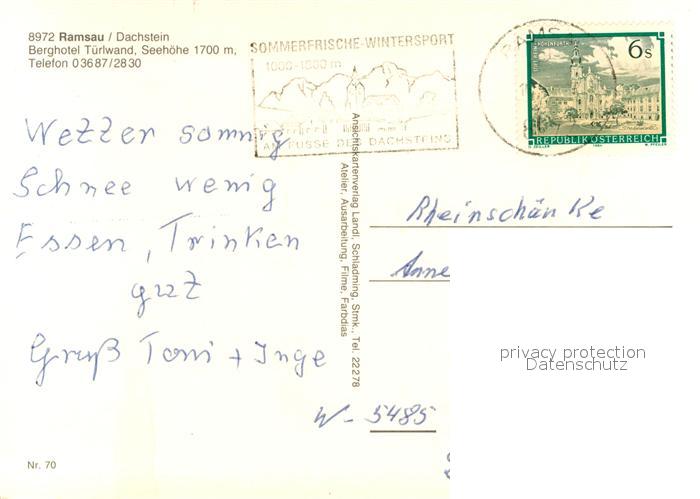 8972 Ramsau / Dachstein
Berghotel Türlwand, Seehöhe 1700 m,
Telefon 03687/2830
SOMMERFRISCHE-WINTERSPORT
1000-1800 m
AM FUSSE DES DACHSTEINS
6s
REPUBLIK ÖSTERREICH
Wetter sonnig
Schnee wenig
Essen, Trinken
gut
Gruß Toni + Inge
Ansichtskartenverlag Landl, Schladming, Stmk., Tel. 22278
Atelier, Ausarbeitung, Filme, Farbdias
Rheinschänke
Anne
privacy protection
Datenschutz
W- 5485
Nr. 70